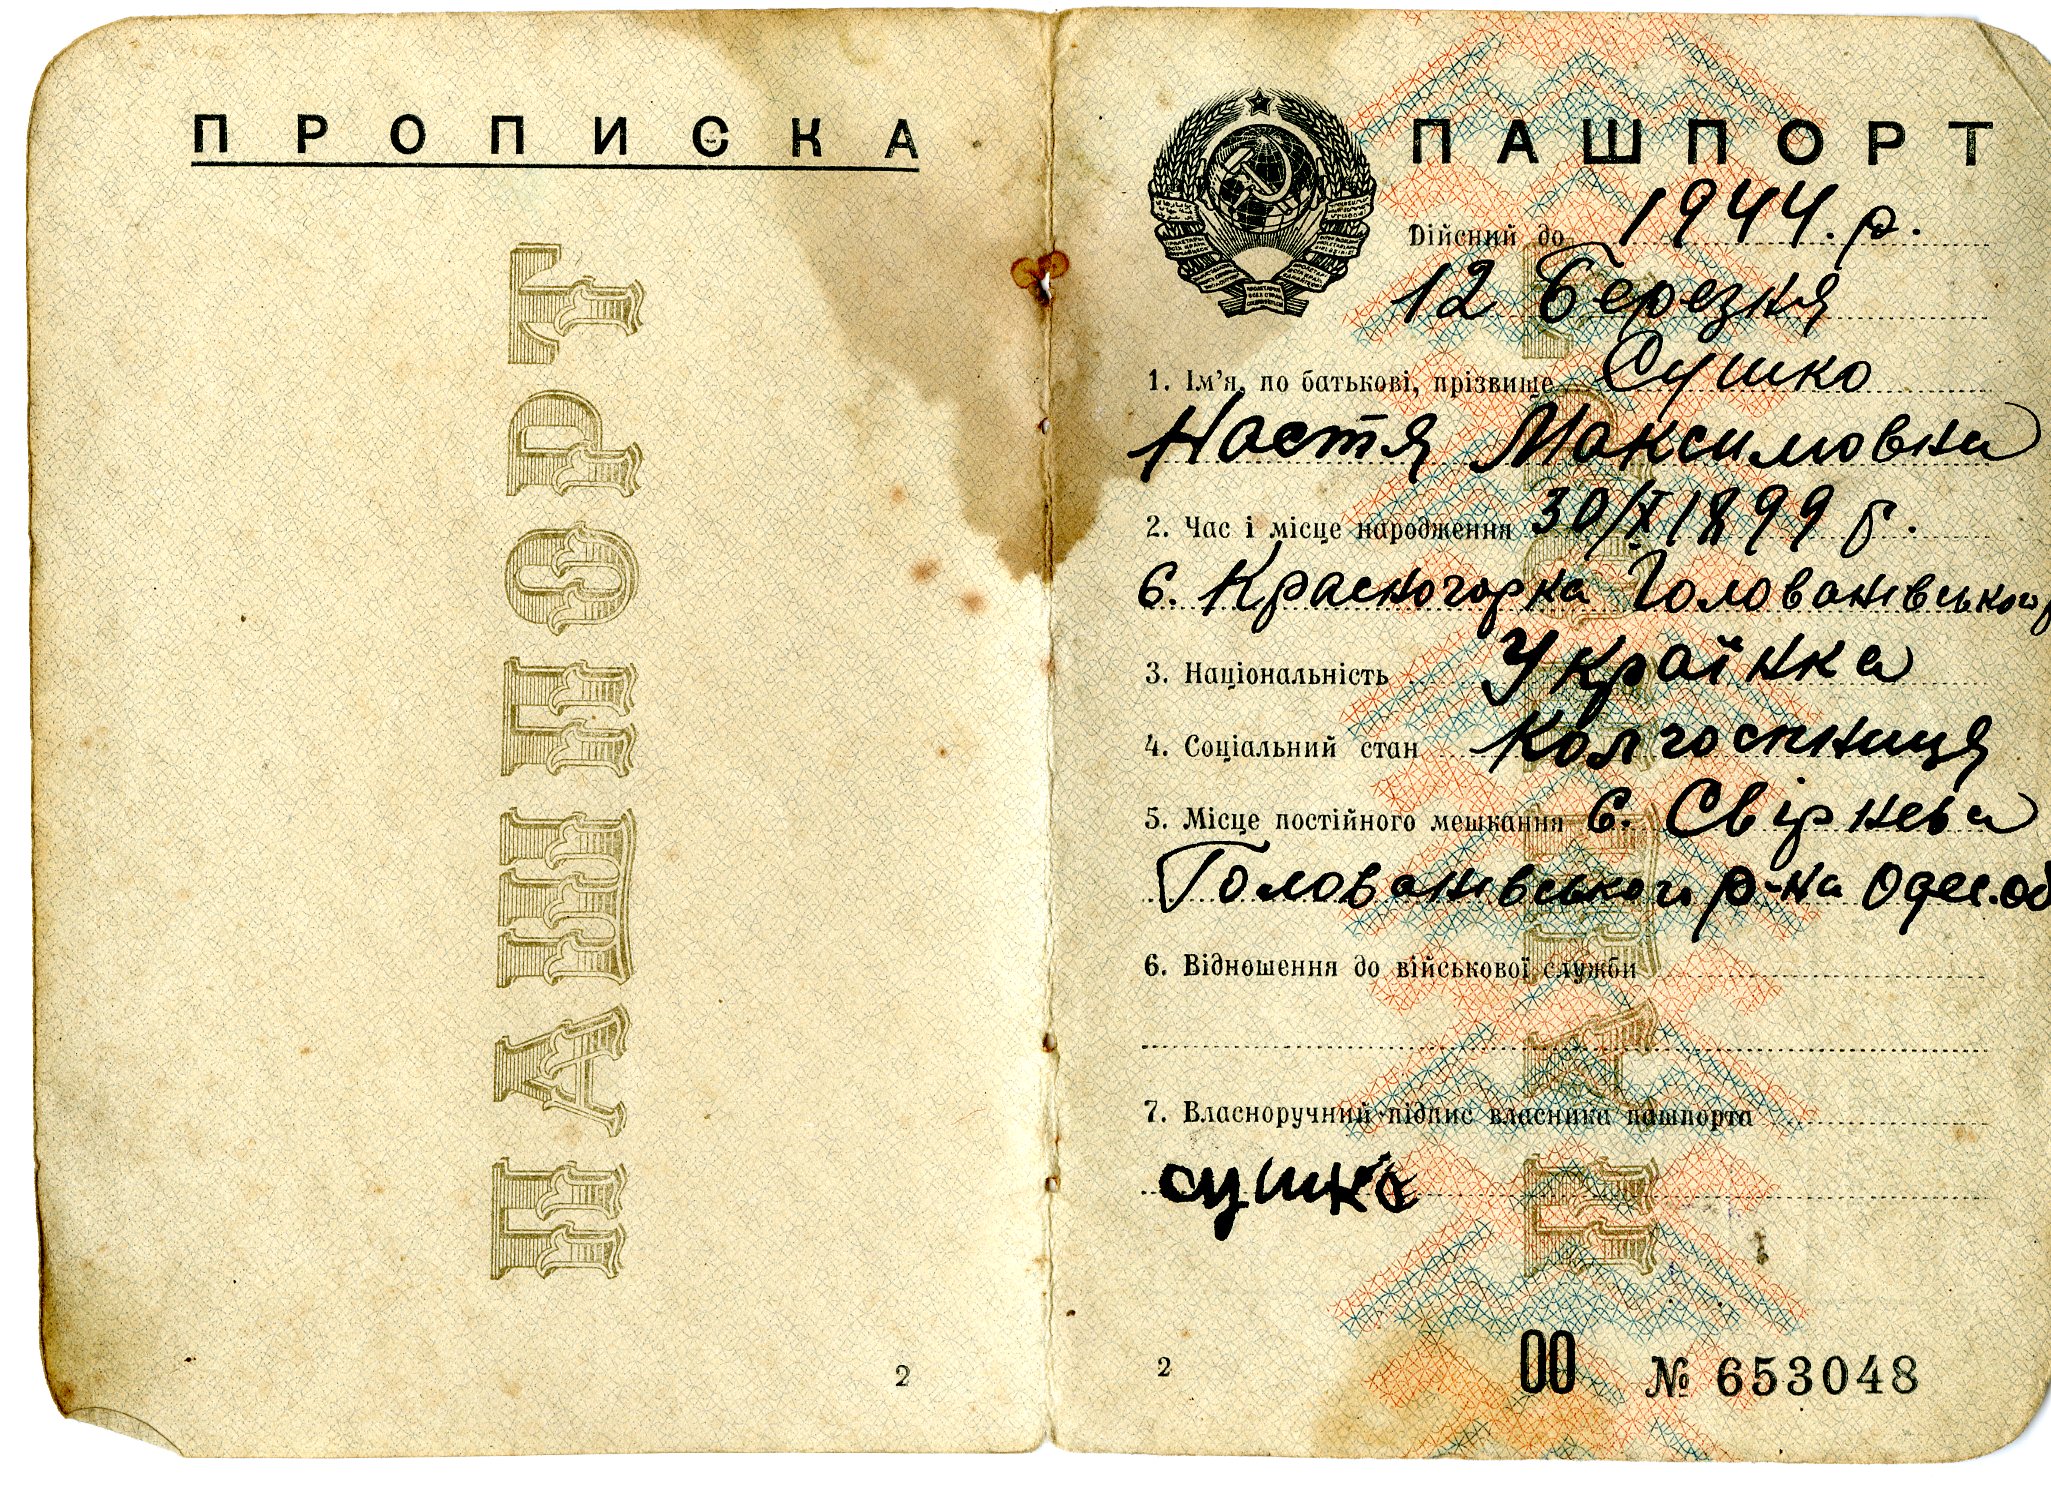 ПРОПИСКА
ПАШПОРТ
2
ПАШПОРТ
Дійсний до 1944. р.
12 Березня
1. Ім'я, по батькові, прізвище Сушко
Настя Максимовна
2. Час і місце народження 30/X 1899 р.
с. Красногорка Голованівського р
3. Національність Українка
4. Соціальний стан Колгоспниця
5. Місце постійного мешкання с. Свірнева
Голованівського р-на Одес. об
6. Відношення до військової служби
7. Власноручний підпис власника пашпорта
сушко
2
00 № 653048
ПАШПОРТ